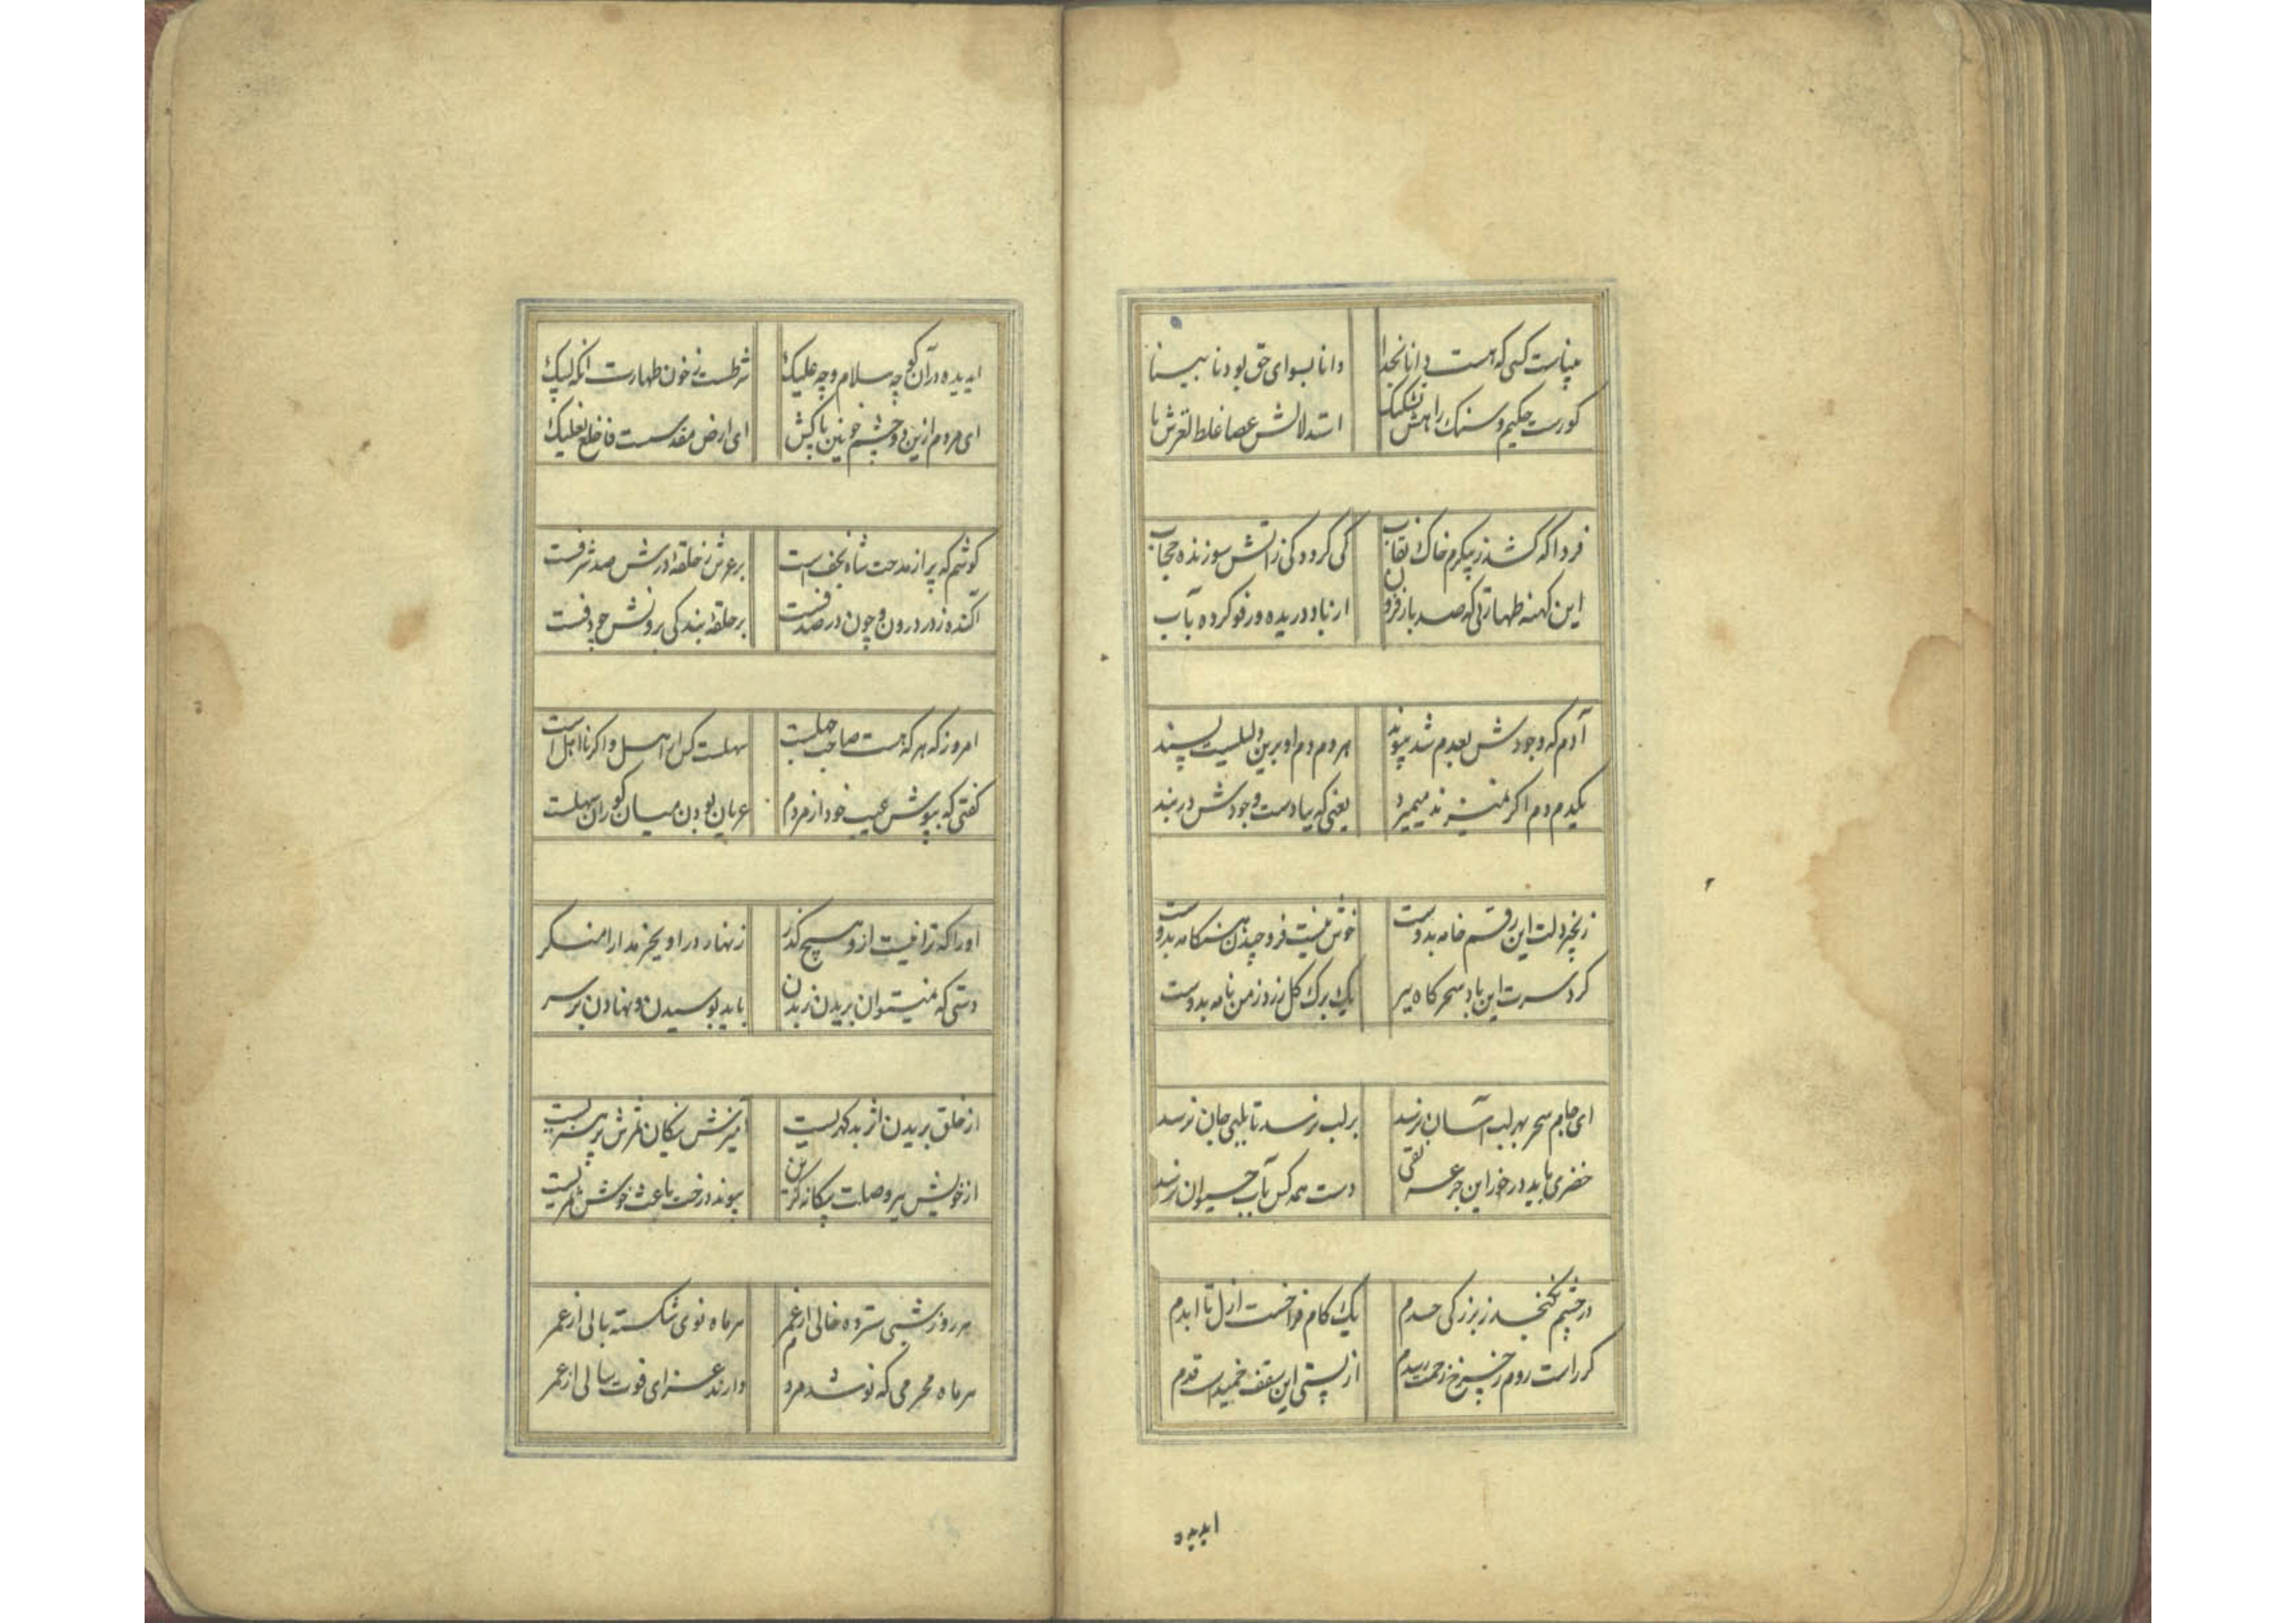 بیناست کسی که هست دانا بخدا
دانا بسوای حق بود نابینا
کورست حکیم و سنک راهش تشکیک
استدلالش عصا غلط لغزش پا
فردا که کشد ز پیکرم خاک نقاب
کی کرد و کی ز آتش سوزنده حجاب
این کهنه طهارتی که صد بار فزون
از باد دریده و رفو کرده بآب
آدم که وجودش بعدم شد پیوند
هر دم دم او برین دلیلیست پسند
یکدم دم اکر نمیزند میمیرد
یعنی که بیادست وجودش در بند
زنجیر دلت این رقم خامه بدوست
خوش نیست فرو چیدن هنکامه بدوست
کرد سرت این باد سحرکاه ببر
یک برک کل زرد ز من نامه بدوست
ای جام سحر بهر لب آسان نرسد
بر لب نرسد تا بلبی جان نرسد
خضری باید درخور این جرعه نقی
دست همه کس بآب حیوان نرسد
در چشم نکنجد ز بزرکی جسدم
یک کام فراخست ازل تا ابدم
کر راست روم ز چرخ زحمت رسدم
از پستی این سقف خمیدست قدم
ایدیده
ایدیده در آن کو چه سلام و چه علیک
شرطست ز خون طهارت آنکه لبیک
ای مردم ازین دو چشم خونین پا کش
ای ارض مقدسست فاخلع نعلیک
کوشم که پر از مدحت شاه نجف است
بر عرش ز حلقه درش صد شرفست
آکنده ز در درون چون در صدفست
بر حلقه بندکی برونش چو دفست
امروز که هر که هست صاحب جهلست
سهلست کس ار اهل و اکر نااهل است
کفتی که بپوش عیب خود از مردم
عریان بودن میان کوران سهلست
اورا که ترا نیست ازو هیچ کذر
زنهار در آویز بدارا منکر
دستی که نمیتوان بریدن ز بدن
باید بوسیدن و نهادن بر سر
از خلق بریدن اثر بد کهریست
آمیزش نیکان ثمرش پر هنریست
از خویش ببر وصلت بیکانه کزین
پیوند درخت باعث خوش ثمریست
هر روز شبی سترده خالی از عمر
هر ماه نوی شکسته بالی از عمر
هر ماه محرمی که نو شد مردم
دارند عزای فوت سالی از عمر